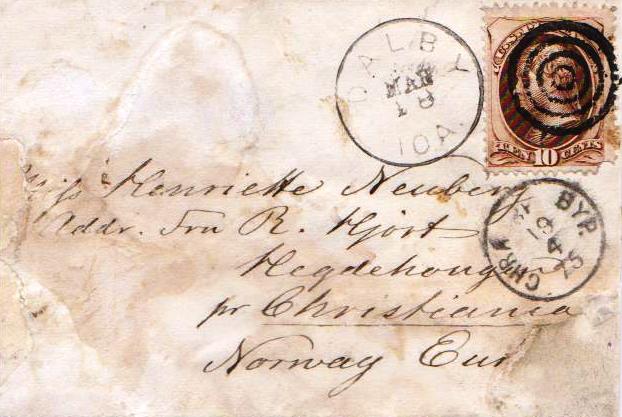 DALBY
MAR
18
IOA.
10
Miss Henriette Neuberg
Addr. Fru R. Hjort
Hegdehougen
pr Christiania
Norway Eur
CHRA BYP.
19
4
75